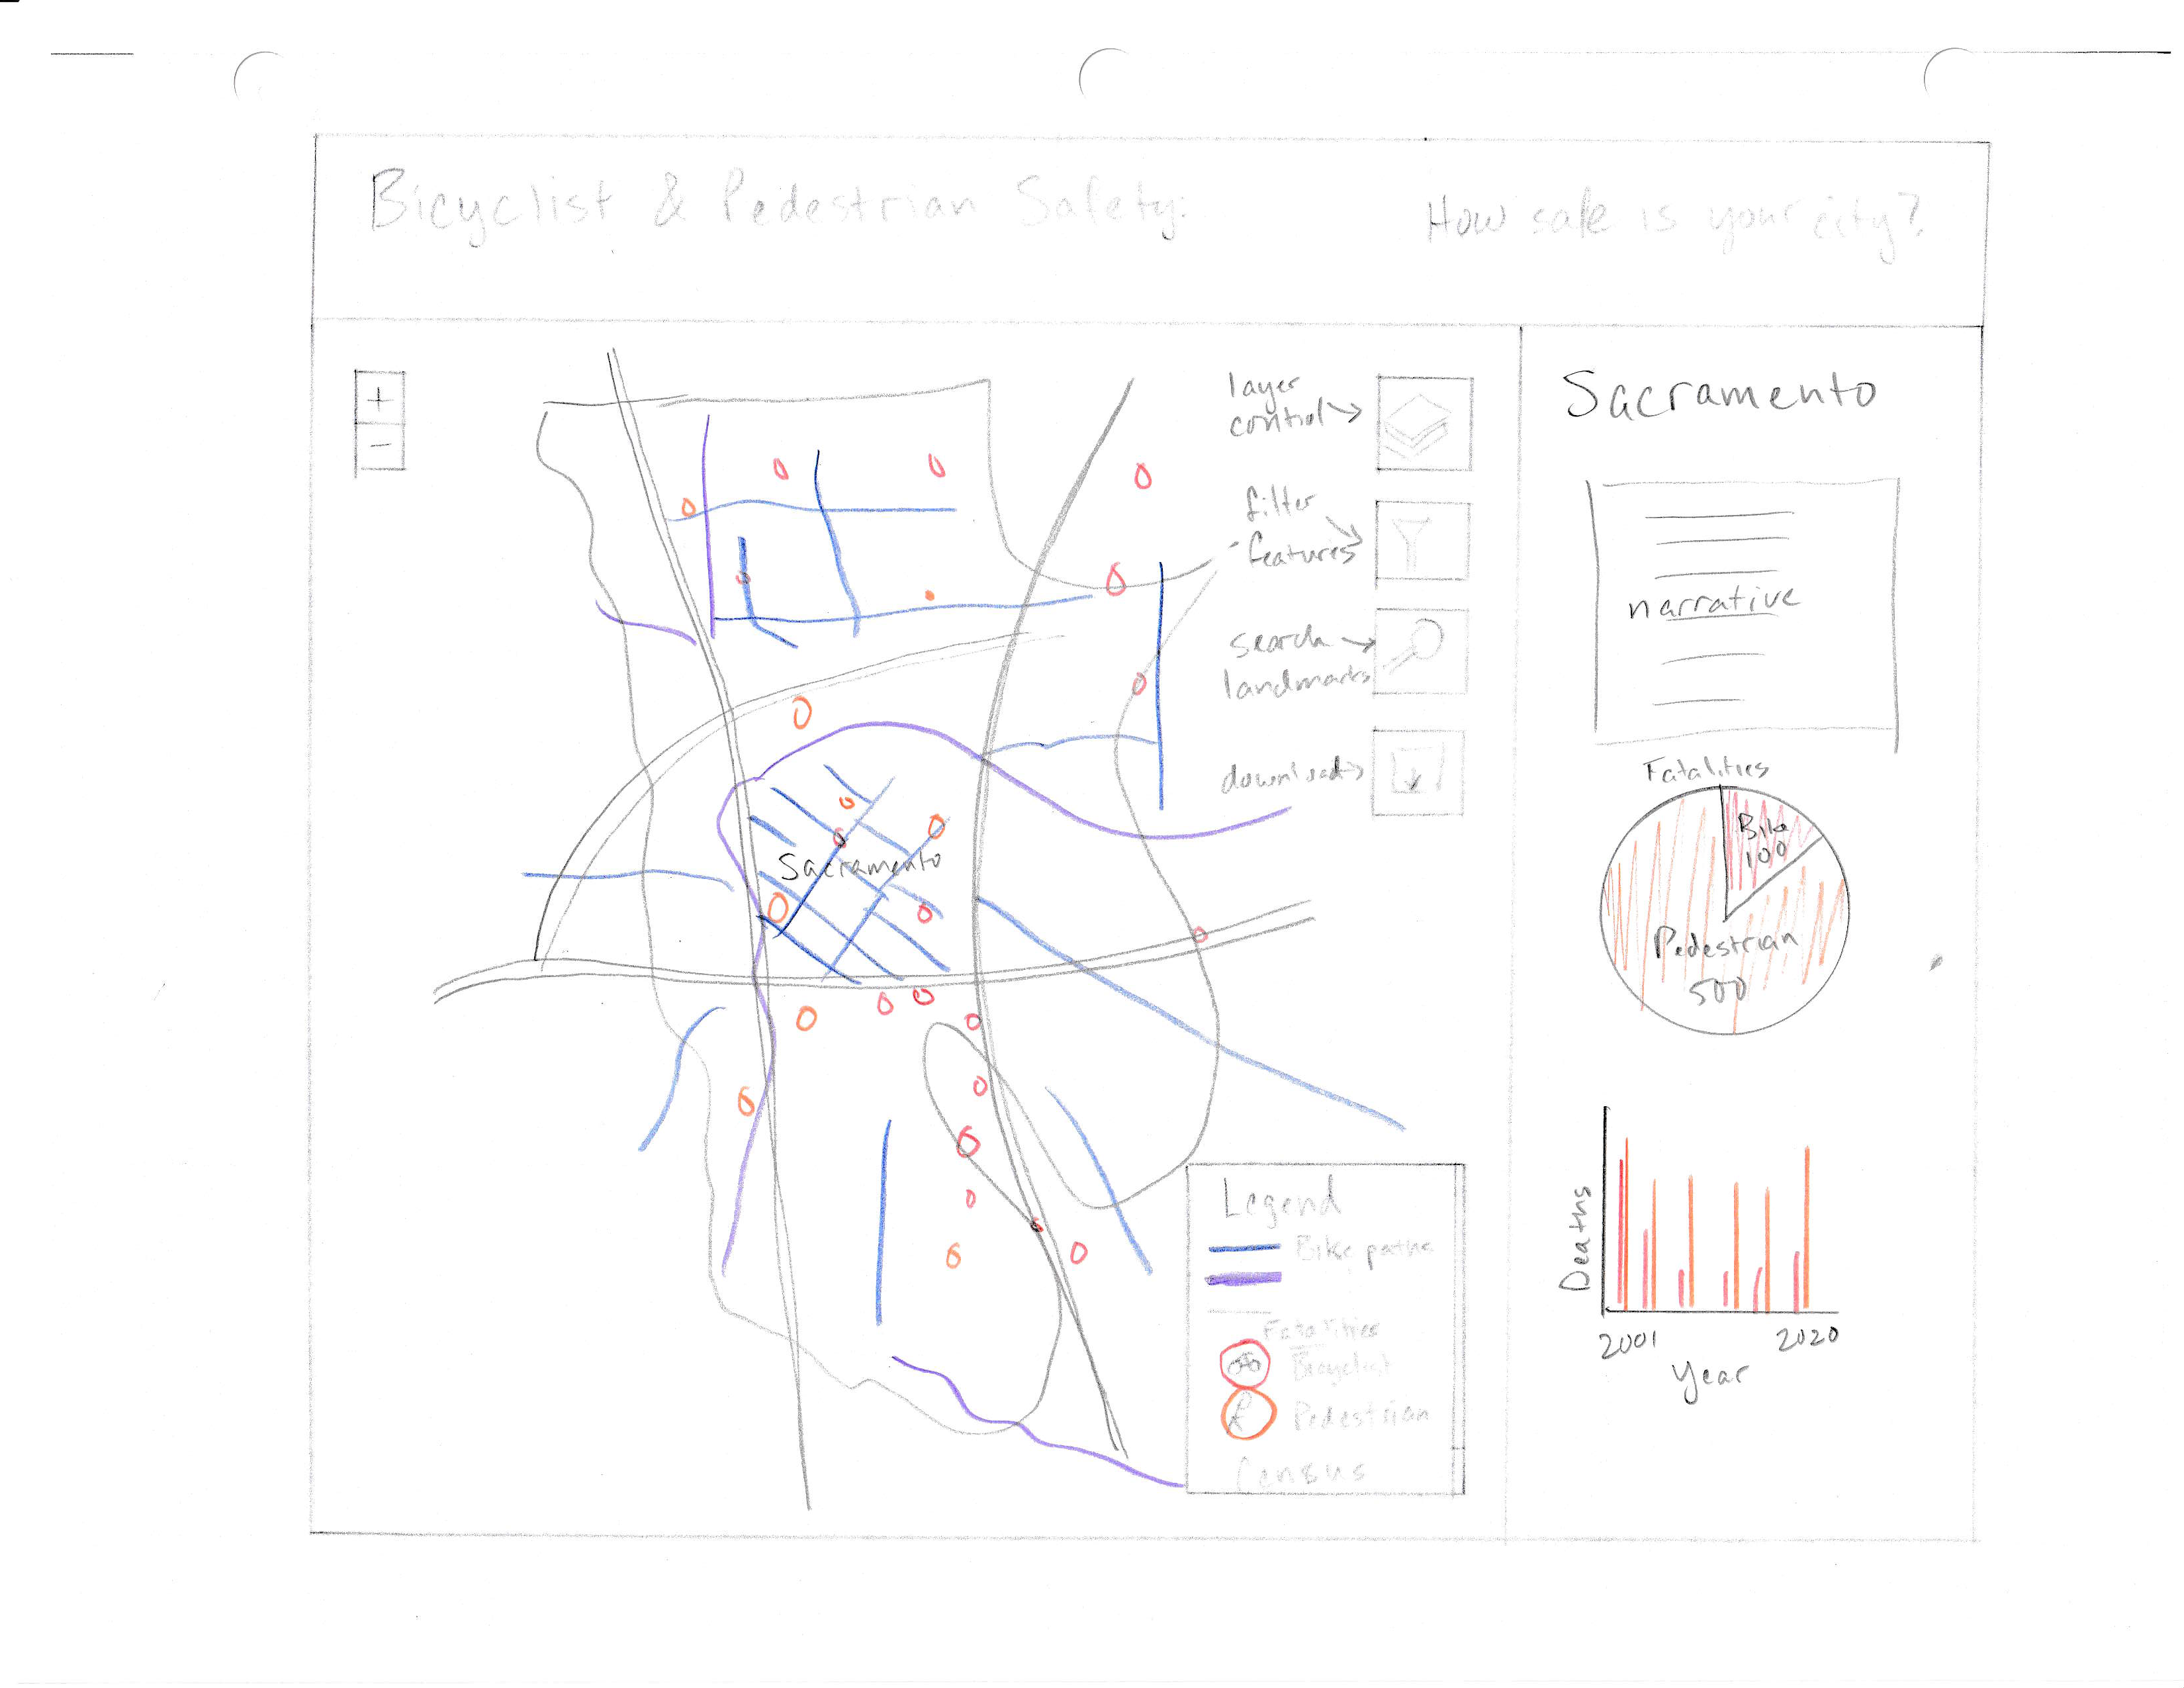 Bicyclist & Pedestrian Safety:
How safe is your city?
+
-
layer
control
filter
features
search
landmarks
download
Sacramento
Legend
Bike paths
Fatalities
Bicyclist
Pedestrian
Census
Sacramento
narrative
Fatalities
Bike
100
Pedestrian
500
Deaths
2001
2020
Year